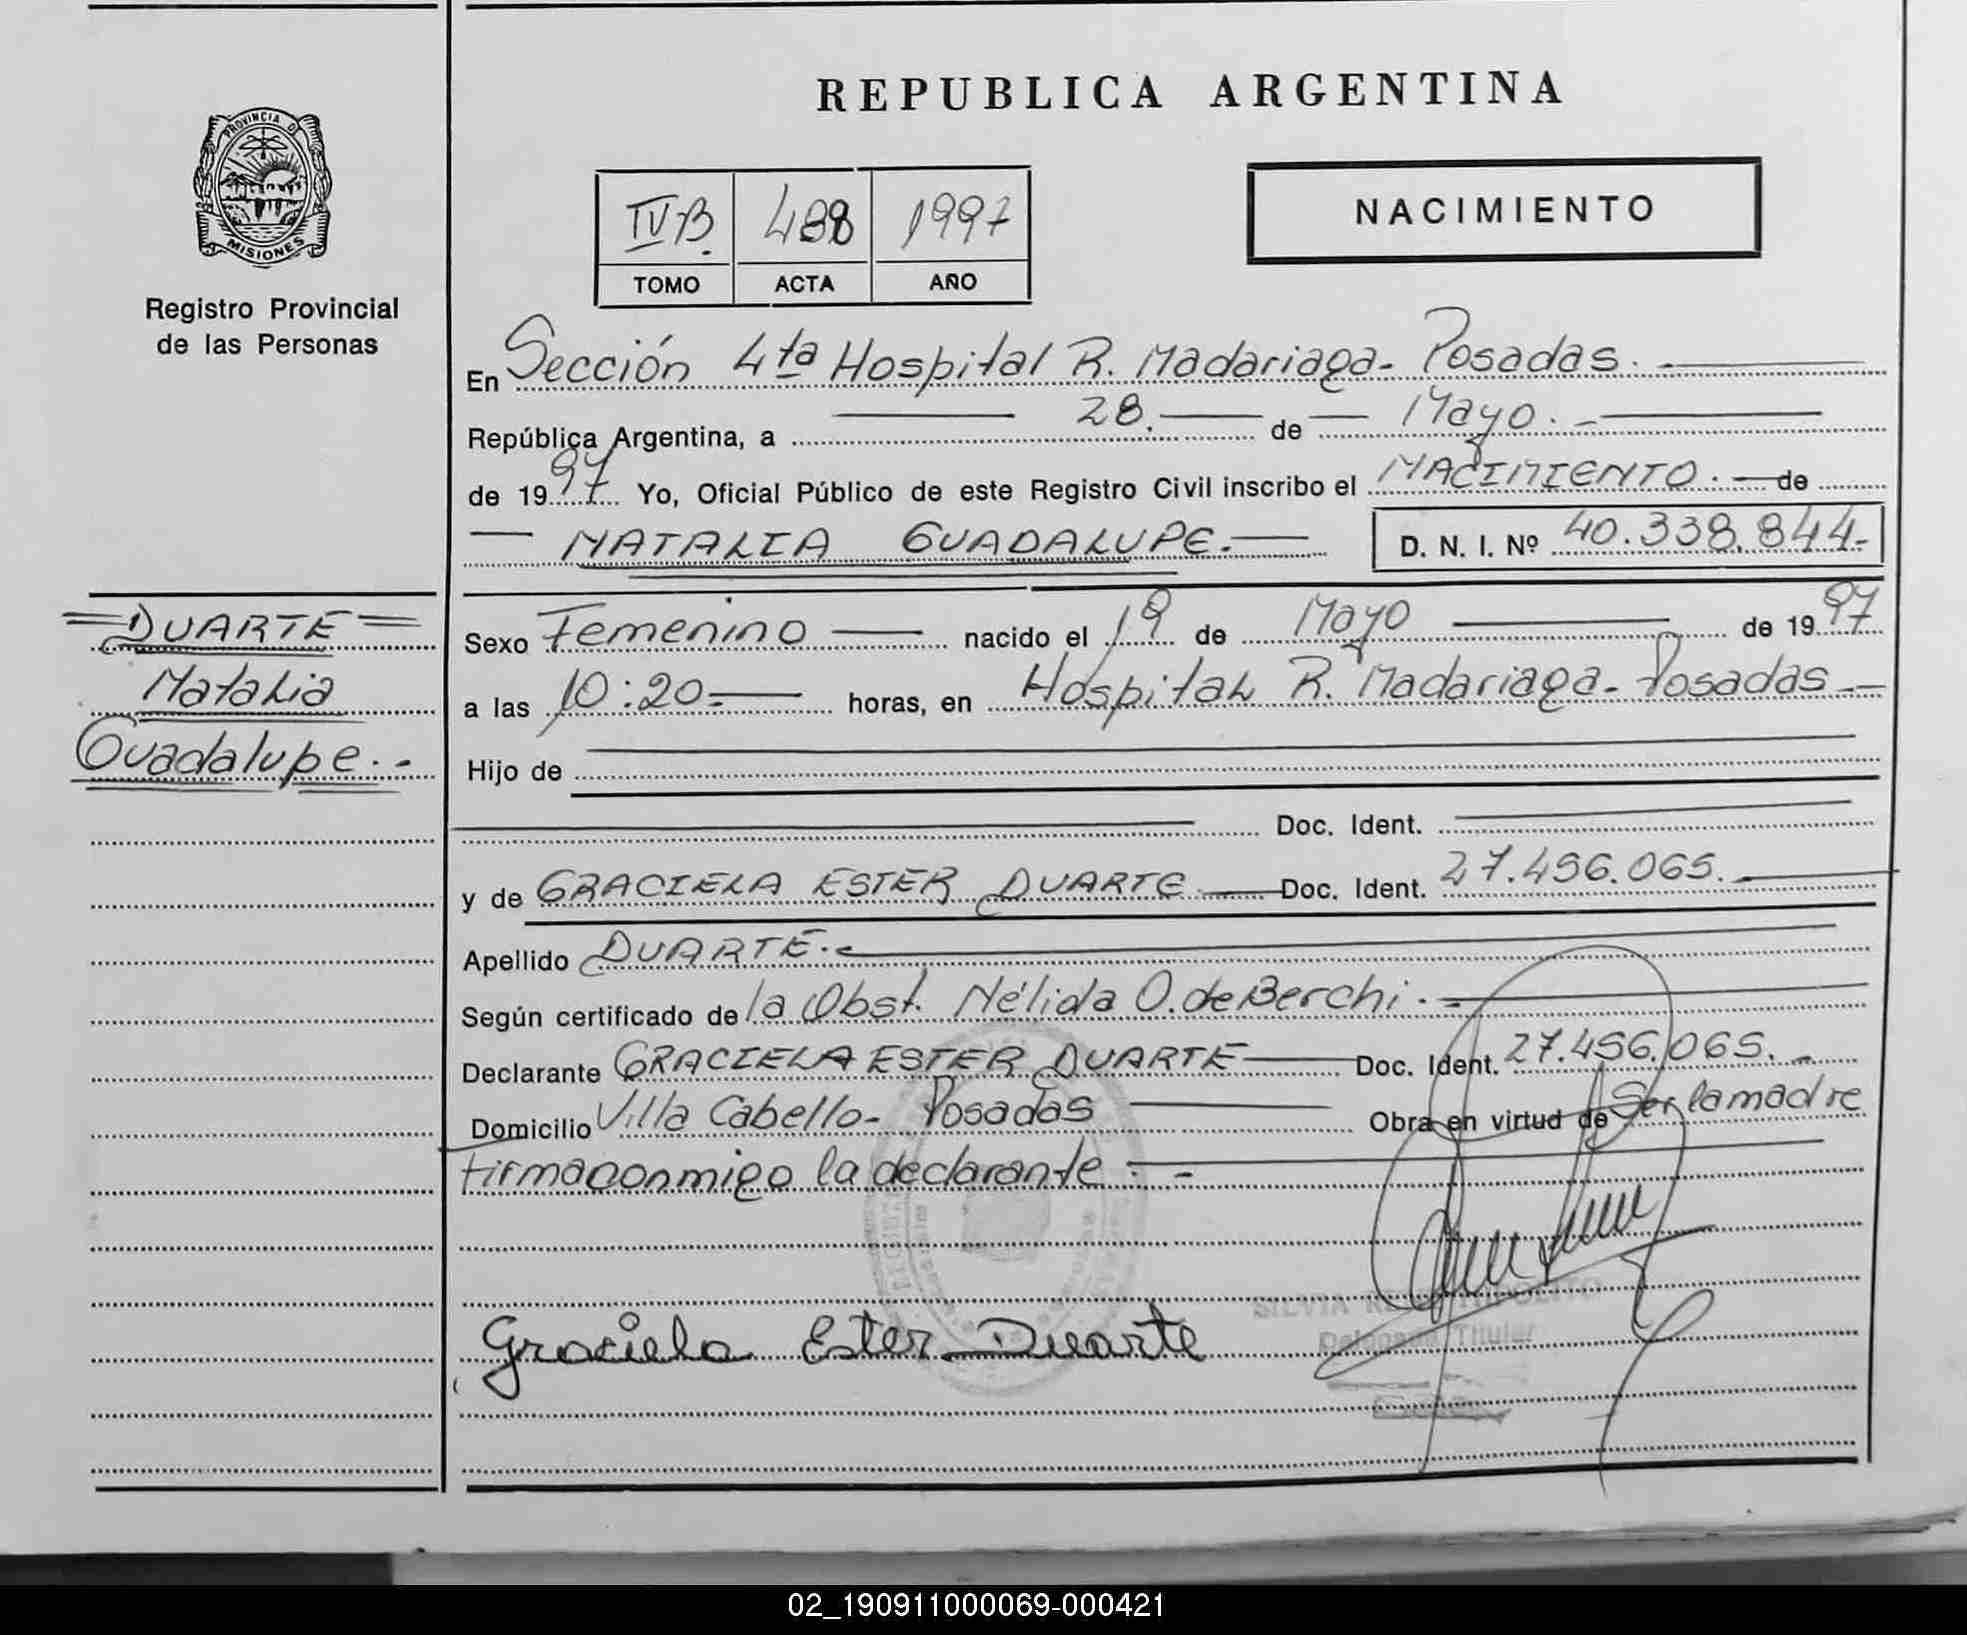 REPUBLICA ARGENTINA
PROVINCIA D
MISIONES
Registro Provincial
de las Personas
IV B. 488 1997
TOMO ACTA AÑO
NACIMIENTO
En Sección 4ta Hospital R. Madariaga - Posadas.
República Argentina, a 28. de Mayo. -
de 1997 Yo, Oficial Público de este Registro Civil inscribo el NACIMIENTO. de
NATALIA GUADALUPE. D. N. I. Nº 40.338.844-
DUARTE
Natalia
Guadalupe. -
Sexo Femenino nacido el 19 de Mayo de 1997
a las 10:20 horas, en Hospital R. Madariaga - Posadas -
Hijo de
Doc. Ident.
y de GRACIELA ESTER DUARTE Doc. Ident. 27.456.065.
Apellido DUARTE. -
Según certificado de la Obst. Nélida O. de Berchi. -
Declarante GRACIELA ESTER DUARTE Doc. Ident. 27.456.065. -
Domicilio Villa Cabello - Posadas Obra en virtud de Ser la madre
firma conmigo la declarante. -
SILVIA
Delegada Titular
Graciela Ester Duarte
02_190911000069-000421